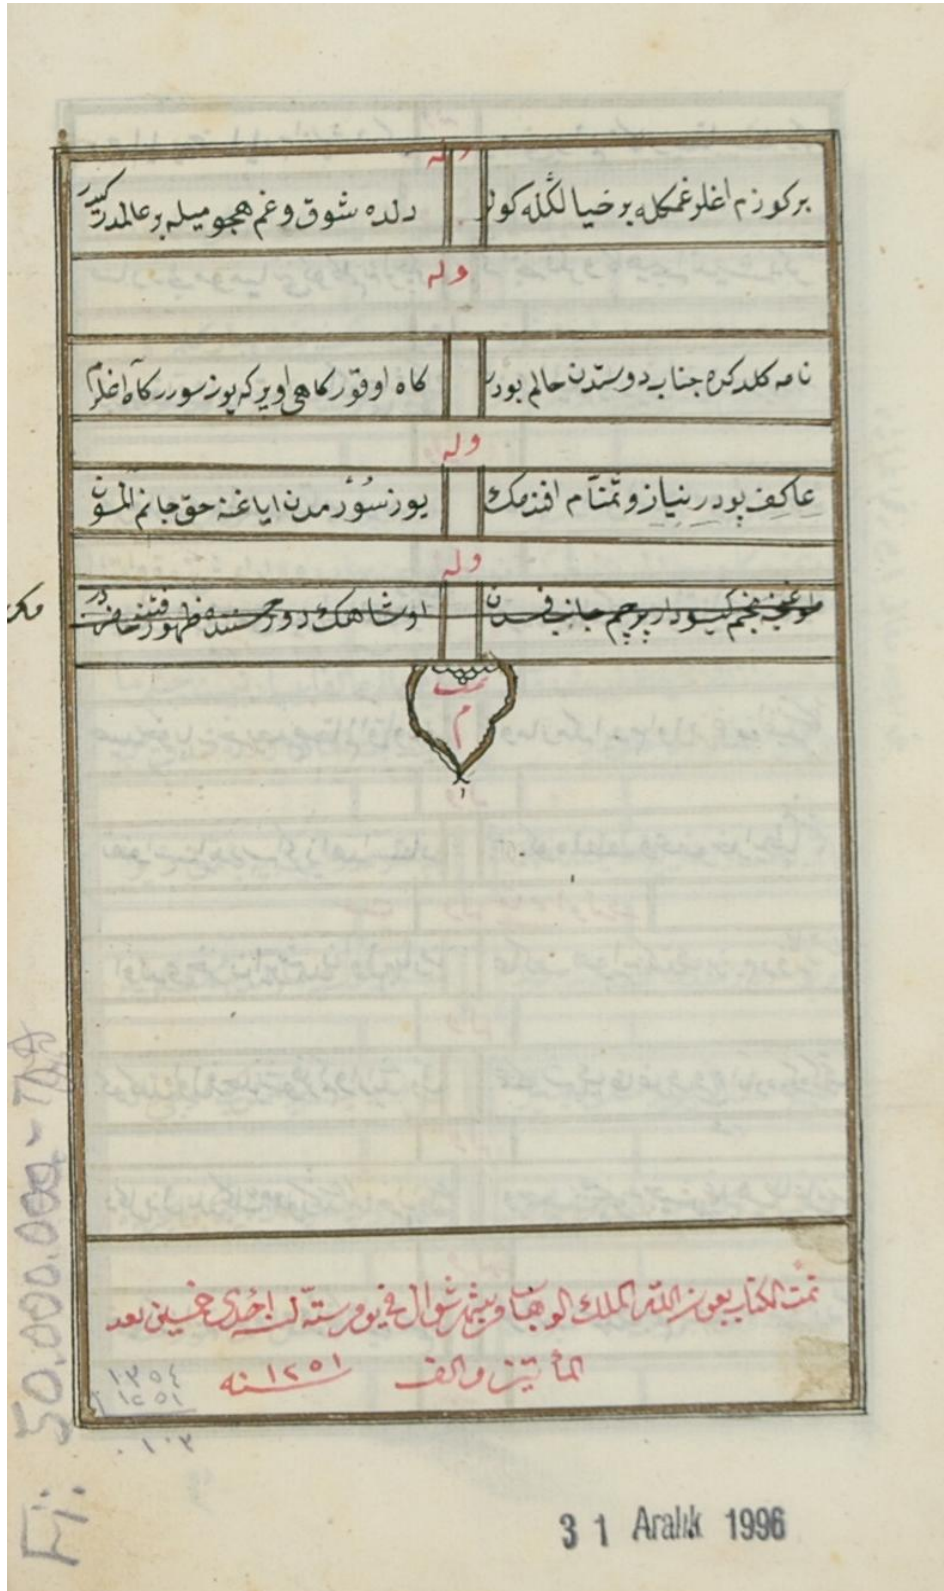 وله
بر كوزم اغلر غمكله بر خيالكله كولر دلده شوق وغم هجوميله بر عالمدر كيدر
وله
نامه كلدكره جناب دوستدن حالم بودر كاه اوقور كاهى اوپر كه يوز سورر كاه اغلرم
وله
عاكف بودر نياز وتمنام افندمك يوز سورمدن اياغنه حق جانم المسون
وله
مكرر
تمت
م
تمت الكتاب بعون الله الملك الوهاب شهر شوال فى يوم سنه احدى خمسين بعد
المأتين والف سنه ١٢٥١
٤٥٣١
١٥٥١
٣٠١٠
Fi: 50.000.000-
31 Aralık 1996